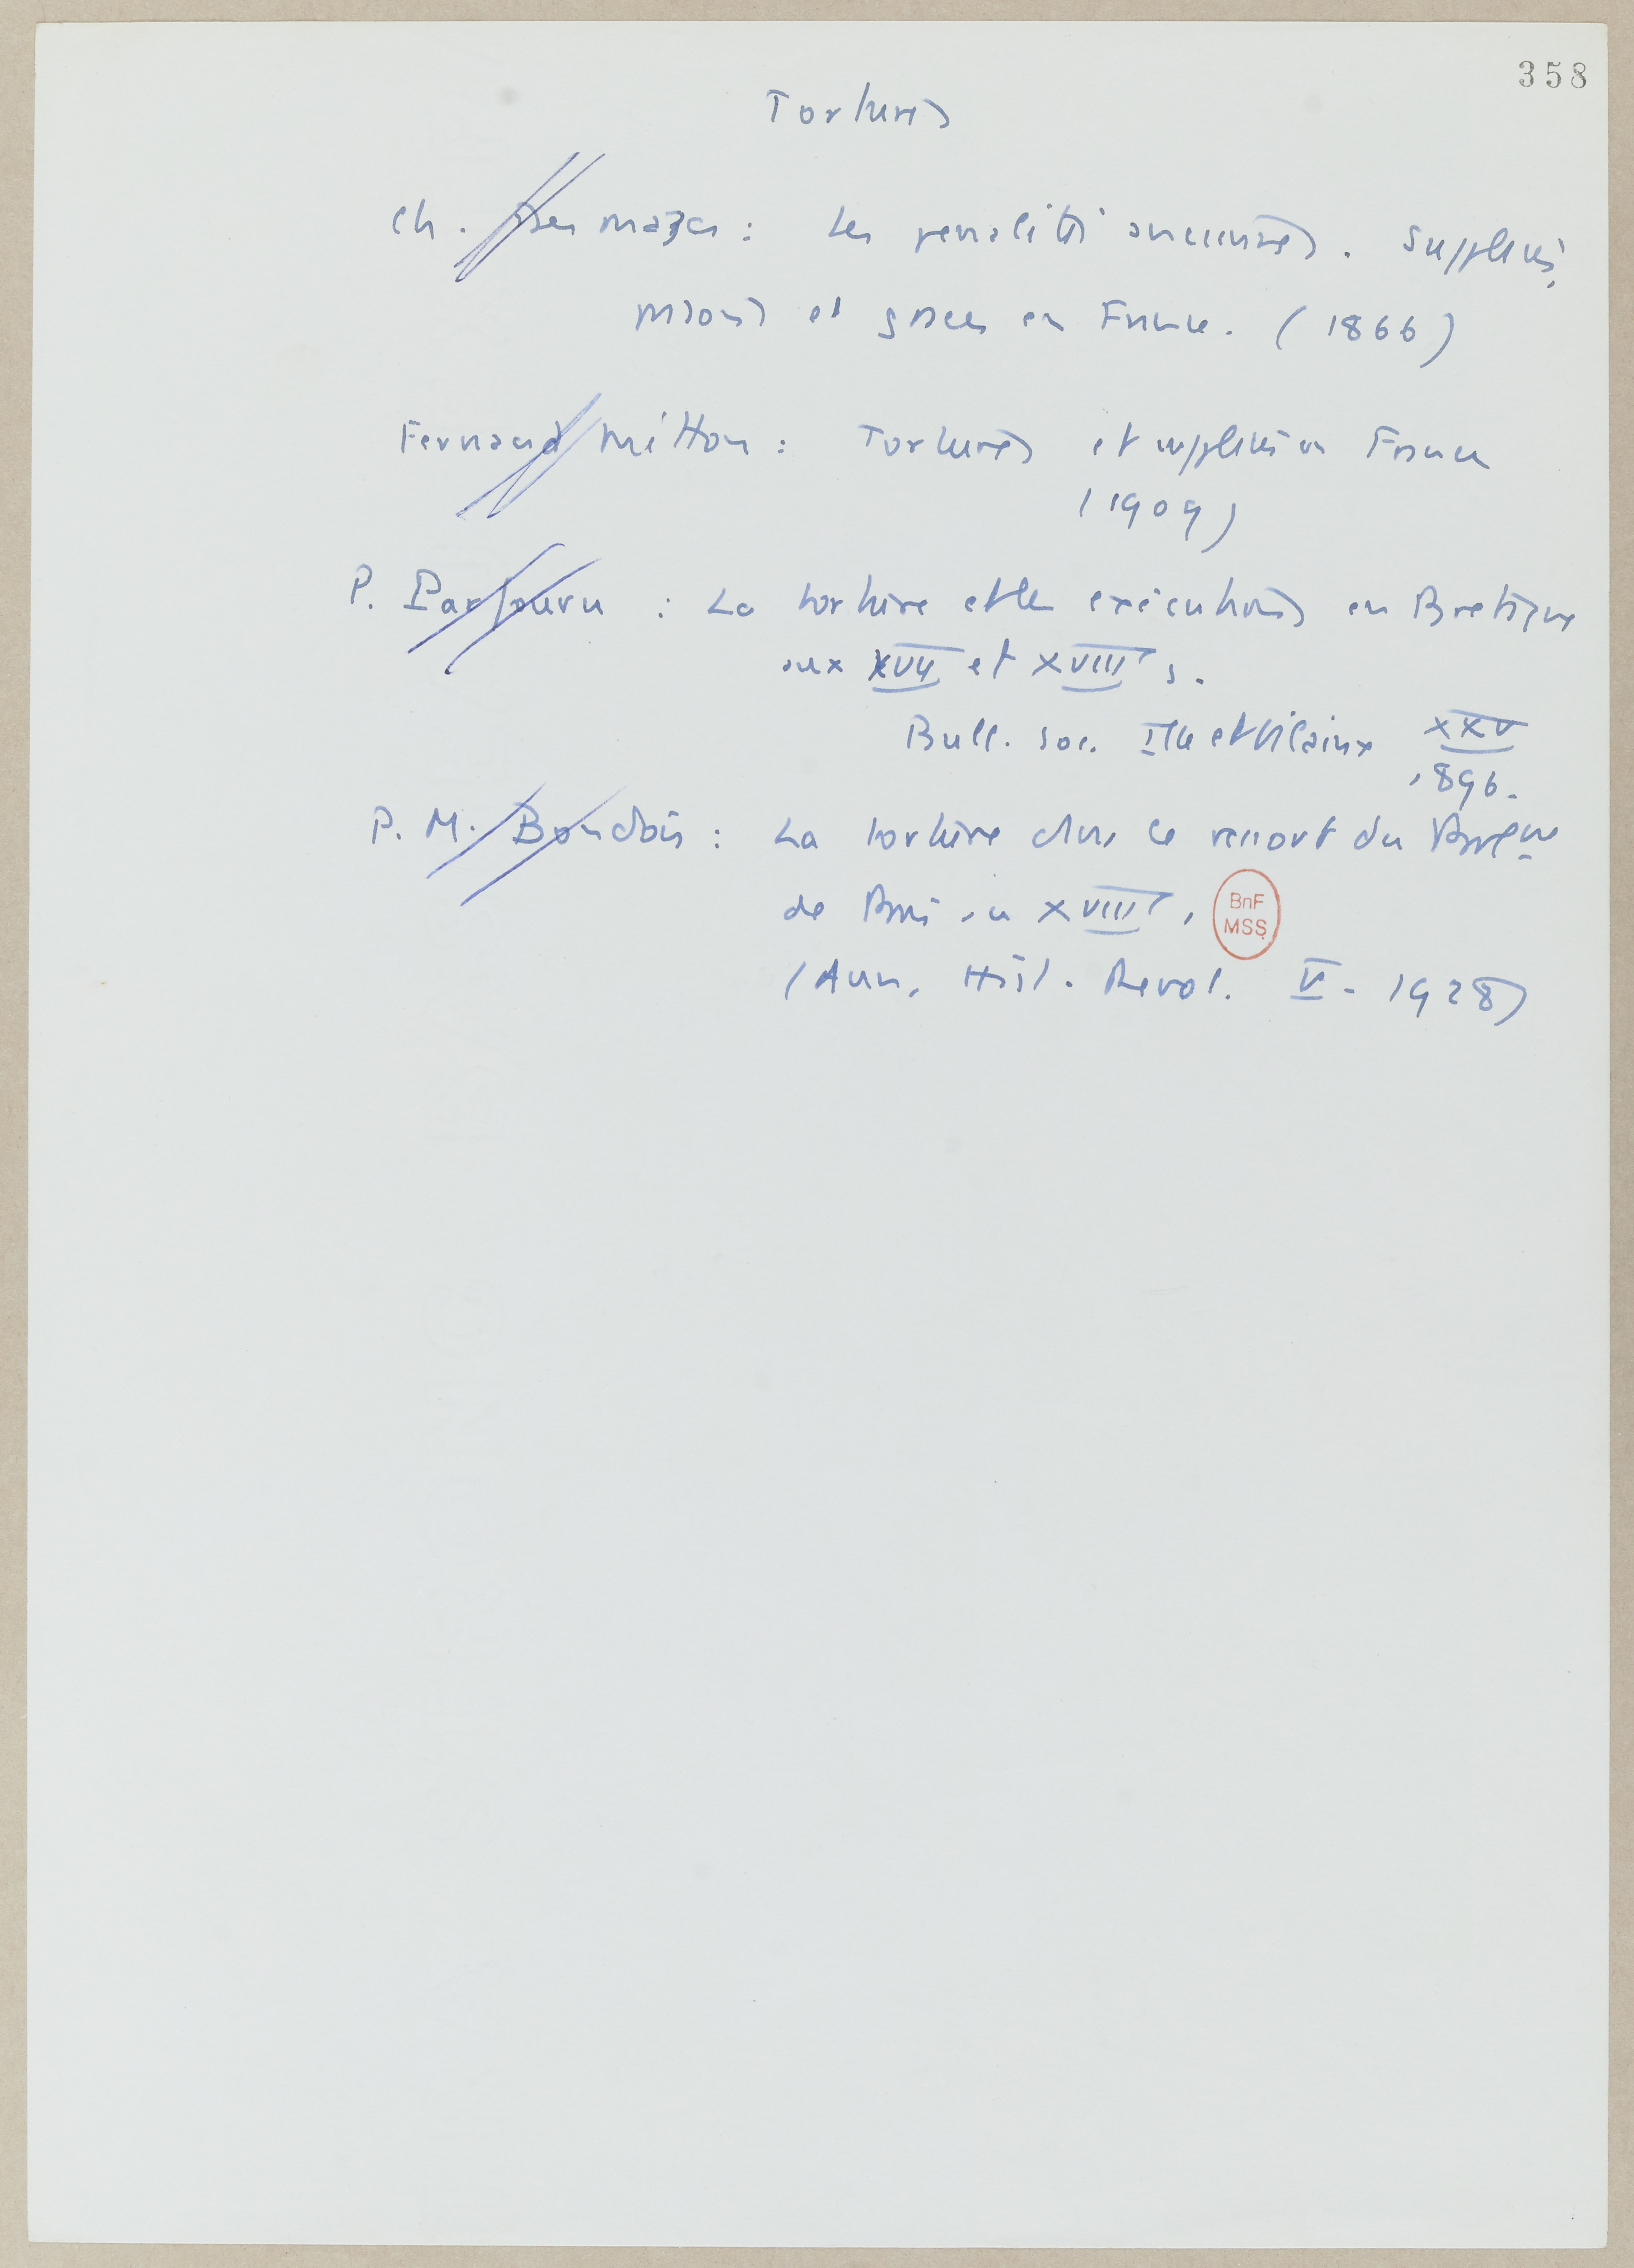 358
Tortures
Ch. Desmazes : Les pénalités anciennes. Supplices,
prisons et grâces en France. (1866)
Fernand Mitton : Tortures et supplices en France
(1909)
P. Parfouru : La torture et les exécutions en Bretagne
aux XVII et XVIII s.
Bull. Soc. Ille et Vilaine XXV
1896.
P. M. Bondois : La torture dans le ressort du Parl
de Paris au XVIII,
BnF
MSS
(Ann. Hist. Revol. V - 1928)